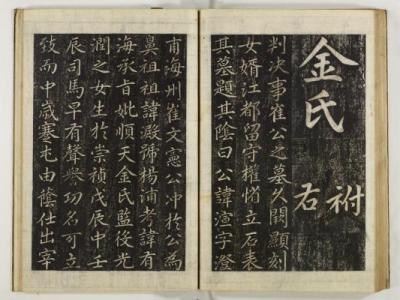 金氏
祔
右
判決事崔公之墓久闕顯刻
女婿江都留守權㥠立石表
其墓題其陰曰公諱濱字澄
甫海州崔文憲公冲於公爲
鼻祖祖諱澱號楊浦考諱有
海承旨妣順天金氏監役光
潤之女生於崇禎戊辰中壬
辰司馬早有聲譽功名可立
致而中歲蹇屯由蔭仕出宰